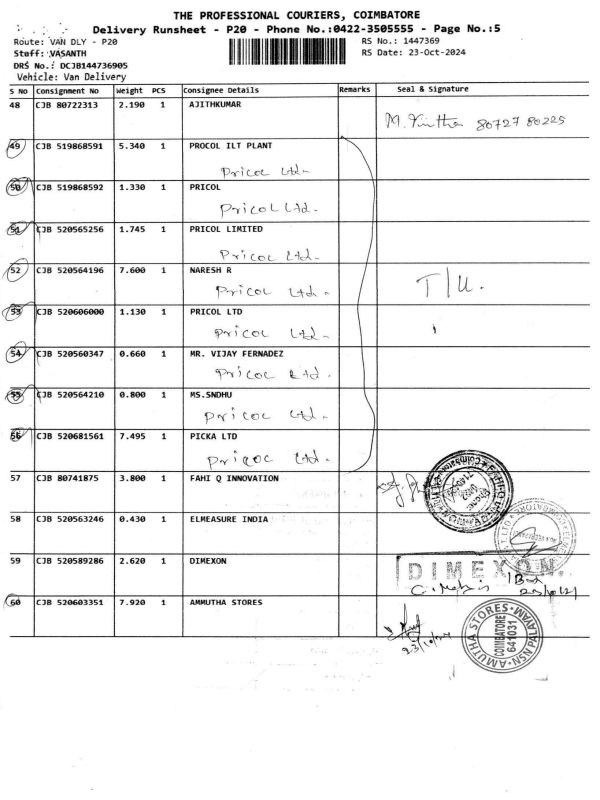 THE PROFESSIONAL COURIERS, COIMBATORE
Delivery Runsheet - P20 - Phone No.:0422-3505555 - Page No.:5
Route: VAN DLY - P20
RS No.: 1447369
Staff: VASANTH
RS Date: 23-Oct-2024
DRS No.: DCJB144736905
Vehicle: Van Delivery
S No Consignment No Weight PCS Consignee Details Remarks Seal & Signature
48 CJB 80722313 2.190 1 AJITHKUMAR
80727 80225
49 CJB 519868591 5.340 1 PROCOL ILT PLANT
Pricol Ltd.
50 CJB 519868592 1.330 1 PRICOL
Pricol Ltd.
51 CJB 520565256 1.745 1 PRICOL LIMITED
Pricol Ltd.
52 CJB 520564196 7.600 1 NARESH R
Pricol Ltd.
T/U.
53 CJB 520606000 1.130 1 PRICOL LTD
Pricol Ltd.
54 CJB 520560347 0.660 1 MR. VIJAY FERNADEZ
Pricol Ltd.
55 CJB 520564210 0.800 1 MS.SNDHU
Pricol Ltd.
56 CJB 520681561 7.495 1 PICKA LTD
Pricol Ltd.
57 CJB 80741875 3.800 1 FAHI Q INNOVATION
58 CJB 520563246 0.430 1 ELMEASURE INDIA
59 CJB 520589286 2.620 1 DIMEXON
DIMEXON.
60 CJB 520603351 7.920 1 AMMUTHA STORES
23/10/24
AMUTHA STORES * NSN PALAYAM
COIMBATORE
641031